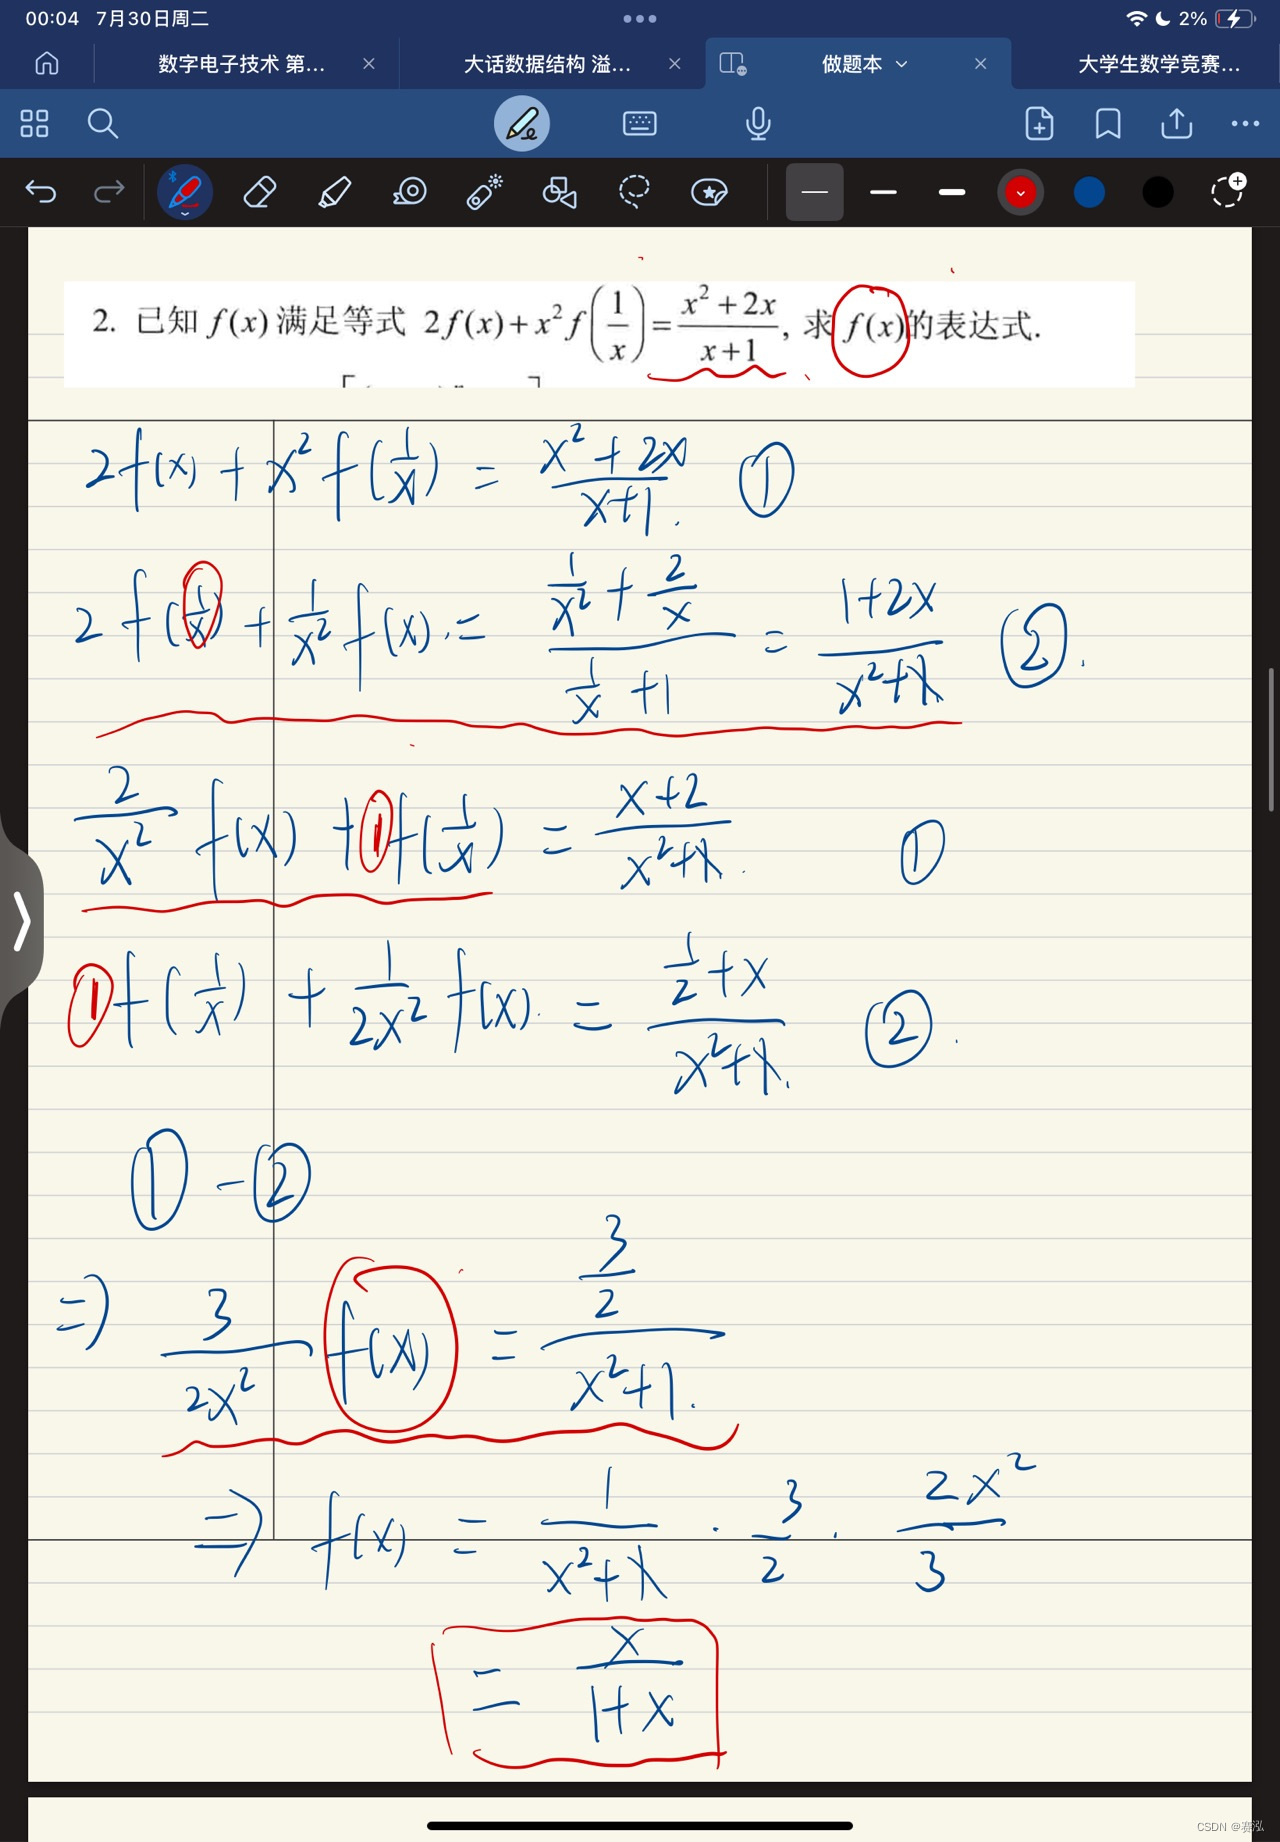 00:04 7月30日周二
2%
数字电子技术 第...
大话数据结构 溢...
做题本
大学生数学竞赛...
2. 已知 f(x) 满足等式 2f(x)+x²f(1/x)=(x²+2x)/(x+1), 求 f(x)的表达式.
2f(x) + x² f(1/x) = (x²+2x)/(x+1). ①
2f(1/x) + 1/x² f(x) = (1/x² + 2/x)/(1/x +1) = (1+2x)/(x²+x) ②.
2/x² f(x) + 1f(1/x) = (x+2)/(x²+x). ①
1f(1/x) + 1/2x² f(x) = (1/2 + x)/(x²+x). ②.
① - ②
⇒ 3/2x² f(x) = (3/2)/(x²+1).
⇒ f(x) = 1/(x²+x) · 3/2 · 2x²/3
= x/(1+x)
CSDN @赛泓